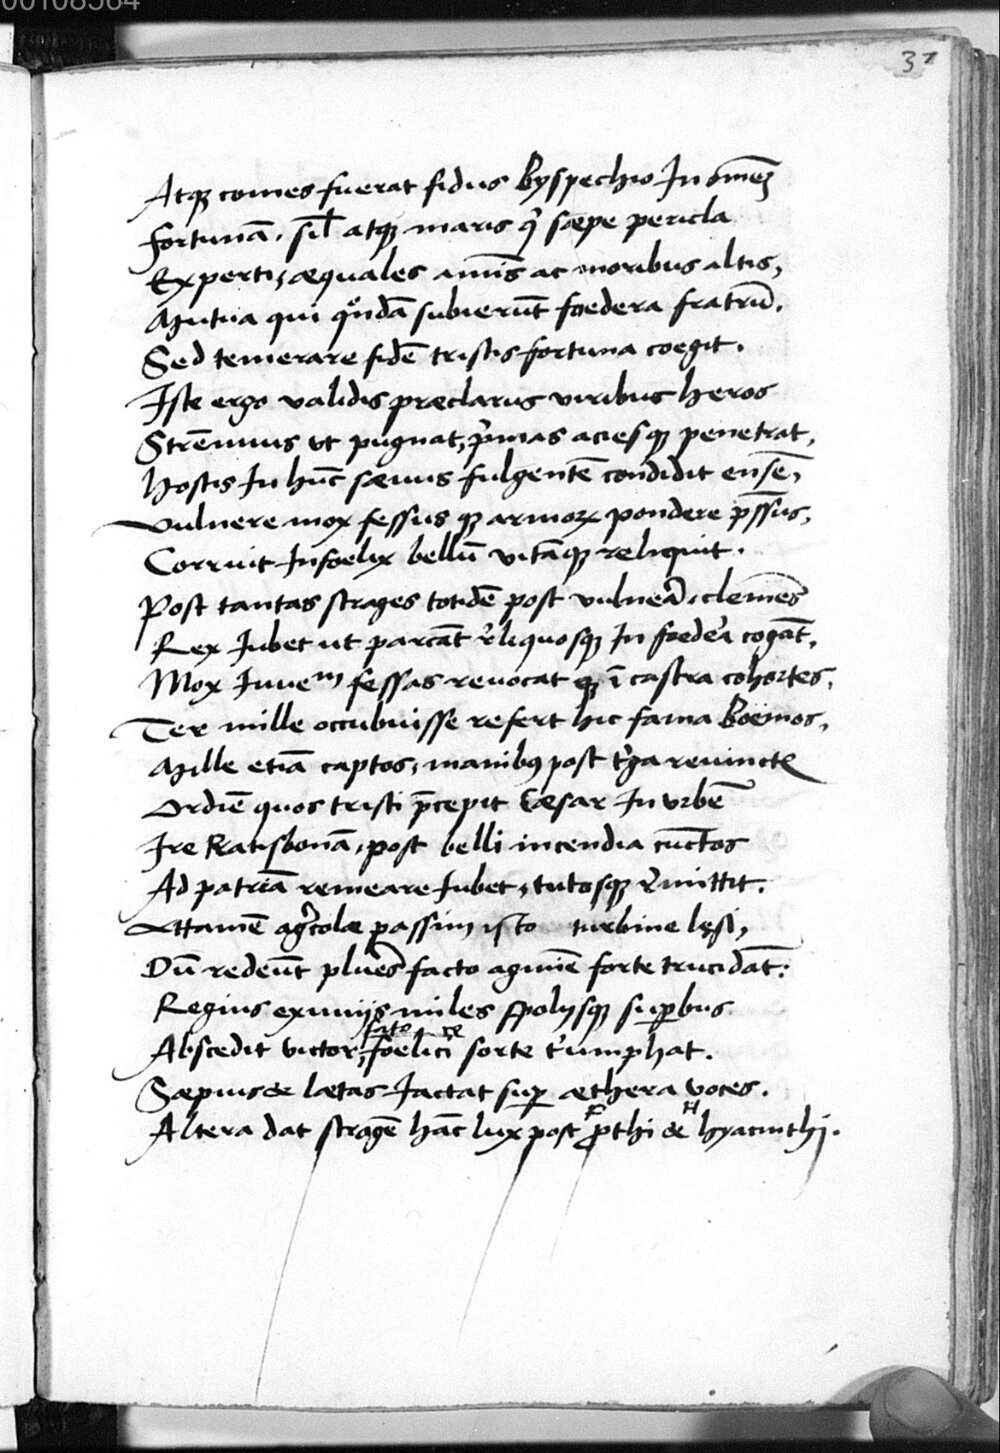 00108564
37
Atqꝫ comes fuerat fidus Byspechio In om̄eꝫ
fortunā, sil̄ atqꝫ maris q̇ sæpe pericla
Experti, æquales aīm̄s ac moribus altis,
Mutua qui qͦndā subierūt foedera fratrū.
Sed temerare fidē tristis fortuna coegit.
Iste ergo validis præclarus viribus heros
Strēnuus ut pugnat, p̍mas aciesqꝫ penetrat,
Hostis In hūc sæuus fulgentē condidit ensē,
Vulnere mox fessus qꝫ armoꝝ pondere p̄ssus,
Corruit Infoelix bellū vitāqꝫ reliquit.
Post tantas strages totidē post vulnera̍, clemēs
Rex Iubet ut parcāt r̍liquosqꝫ In foedera̍ cogāt,
Mox Iuueᵐ fessas reuocat qꝫ ī castra cohortes,
Ter mille occubuisse refert hic fama Boëmos,
Mille etiā captos, manibꝰ post t̍ga reuinctꝭ
Ordiē quos tristi p̄cepit Cæsar In vrbē
Ire Ratisbonā, post belli incendia cūctos
Ad patriā remeare Iubet, tutosqꝫ r̍mittit.
Attamē ag̍colæ passim isto turbine lęsi,
Dū redeūt plures̍ facto agmīe forte trucidāt:
Regius eximijs miles spolijsqꝫ suꝑbus
fato ce
Abscedit victor, foelici sorte t̍umphat.
Sæpius & lætas Iactat suꝑ æthera voces.
F H
Altera dat stragē hāc lux post ꝓthi & hyacinthi.